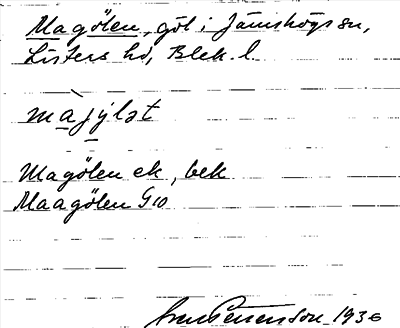 Magölen, göl i Jämshögs sn,
Listers hd, Blek. l.
màjýlət
Magölen ek, bek
Maagölen G10
Sven Petterson 1936